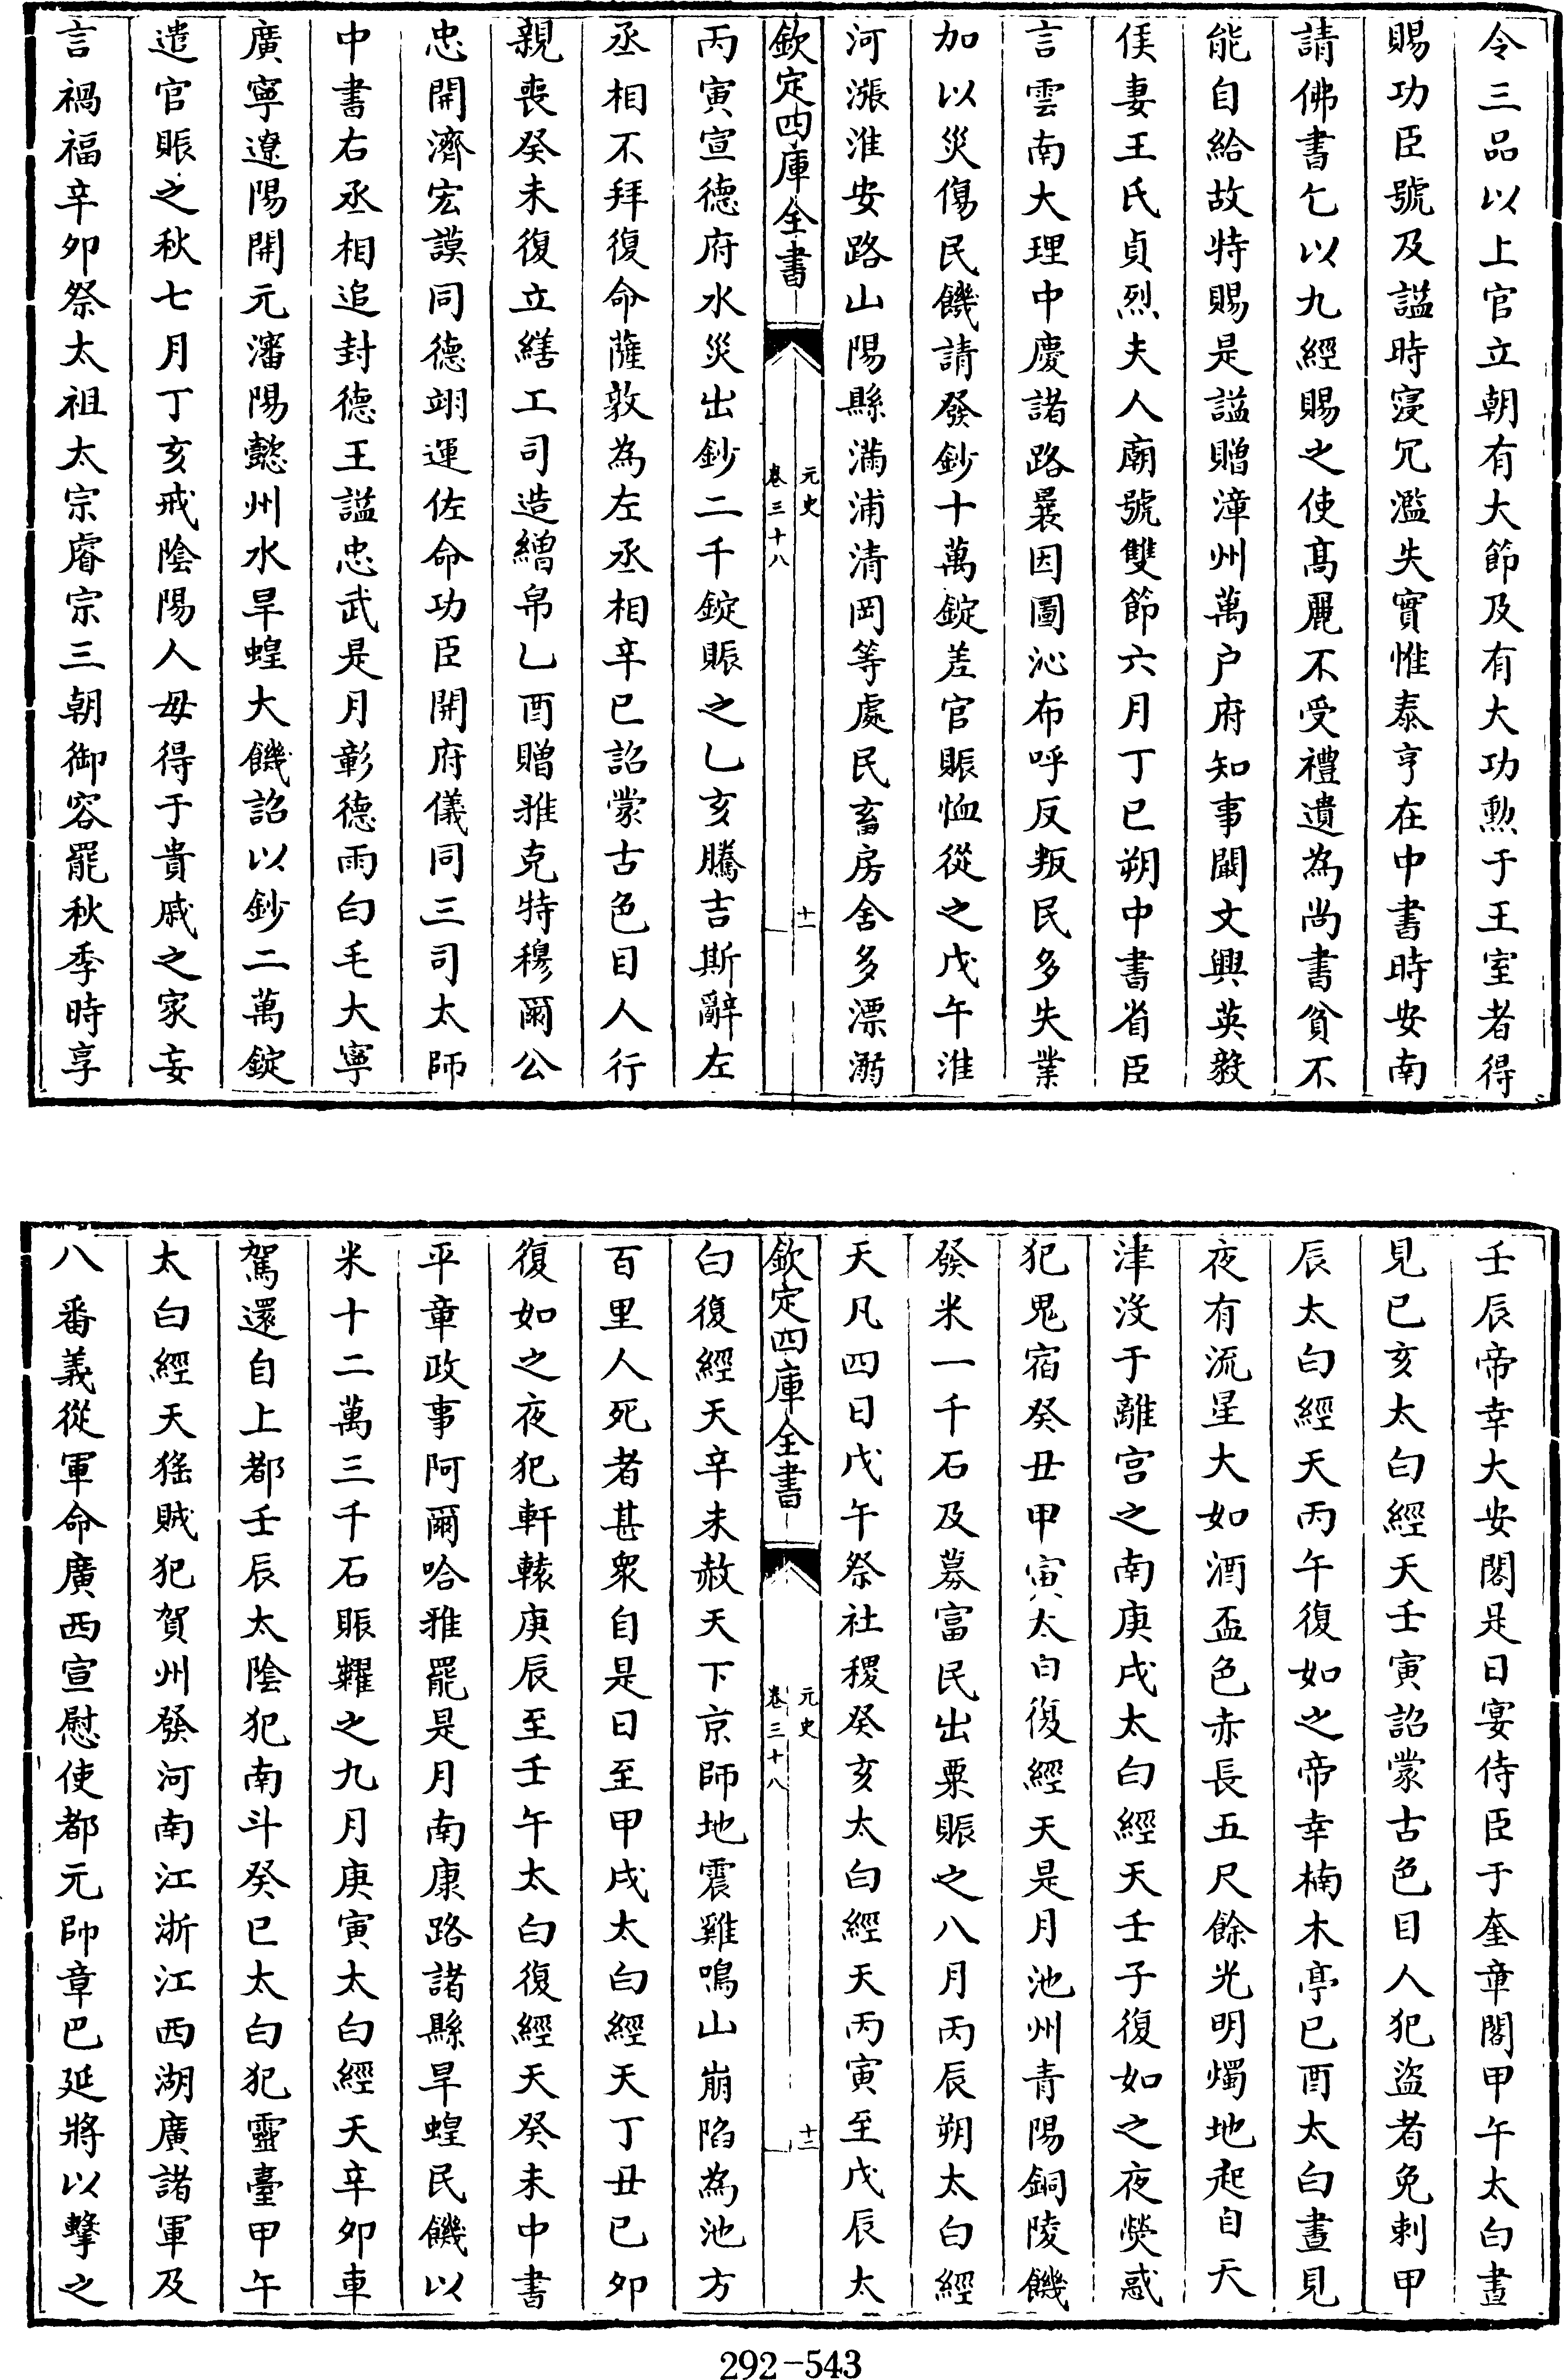 令三品以上官立朝有大節及有大功勲于王室者得
賜功臣號及諡時寖冗濫失實惟泰亨在中書時安南
請佛書乞以九經賜之使髙麗不受禮遺為尚書貧不
能自給故特賜是諡贈漳州萬户府知事闞文興英毅
侯妻王氏貞烈夫人廟號雙節六月丁巳朔中書省臣
言雲南大理中慶諸路曩因圖沁布呼反叛民多失業
加以災傷民饑請發鈔十萬錠差官賑恤從之戊午淮
河漲淮安路山陽縣滿浦清岡等處民畜房舍多漂溺
欽定四庫全書
元史
卷三十八
十一
丙寅宣德府水災出鈔二千錠賑之乙亥騰吉斯辭左
丞相不拜復命薩敦為左丞相辛巳詔蒙古色目人行
親喪癸未復立繕工司造繒帛乙酉贈雅克特穆爾公
忠開濟宏謨同德翊運佐命功臣開府儀同三司太師
中書右丞相追封德王諡忠武是月彰德雨白毛大寧
廣寧遼陽開元瀋陽懿州水旱蝗大饑詔以鈔二萬錠
遣官賑之秋七月丁亥戒陰陽人毋得于貴戚之家妄
言禍福辛卯祭太祖太宗睿宗三朝御容罷秋季時享
壬辰帝幸大安閣是日宴侍臣于奎章閣甲午太白晝
見己亥太白經天壬寅詔蒙古色目人犯盜者免刺甲
辰太白經天丙午復如之帝幸楠木亭己酉太白晝見
夜有流星大如酒盃色赤長五尺餘光明燭地起自天
津没于離宫之南庚戌太白經天壬子復如之夜熒惑
犯鬼宿癸丑甲寅太白復經天是月池州青陽銅陵饑
發米一千石及募富民出粟賑之八月丙辰朔太白經
天凡四日戊午祭社稷癸亥太白經天丙寅至戊辰太
欽定四庫全書
元史
卷三十八
十二
白復經天辛未赦天下京師地震雞鳴山崩陷為池方
百里人死者甚衆自是日至甲戌太白經天丁丑己卯
復如之夜犯軒轅庚辰至壬午太白復經天癸未中書
平章政事阿爾哈雅罷是月南康路諸縣旱蝗民饑以
米十二萬三千石賑糶之九月庚寅太白經天辛卯車
駕還自上都壬辰太陰犯南斗癸巳太白犯靈臺甲午
太白經天猺賊犯賀州發河南江浙江西湖廣諸軍及
八番義從軍命廣西宣慰使都元帥章巴延將以擊之
292-543